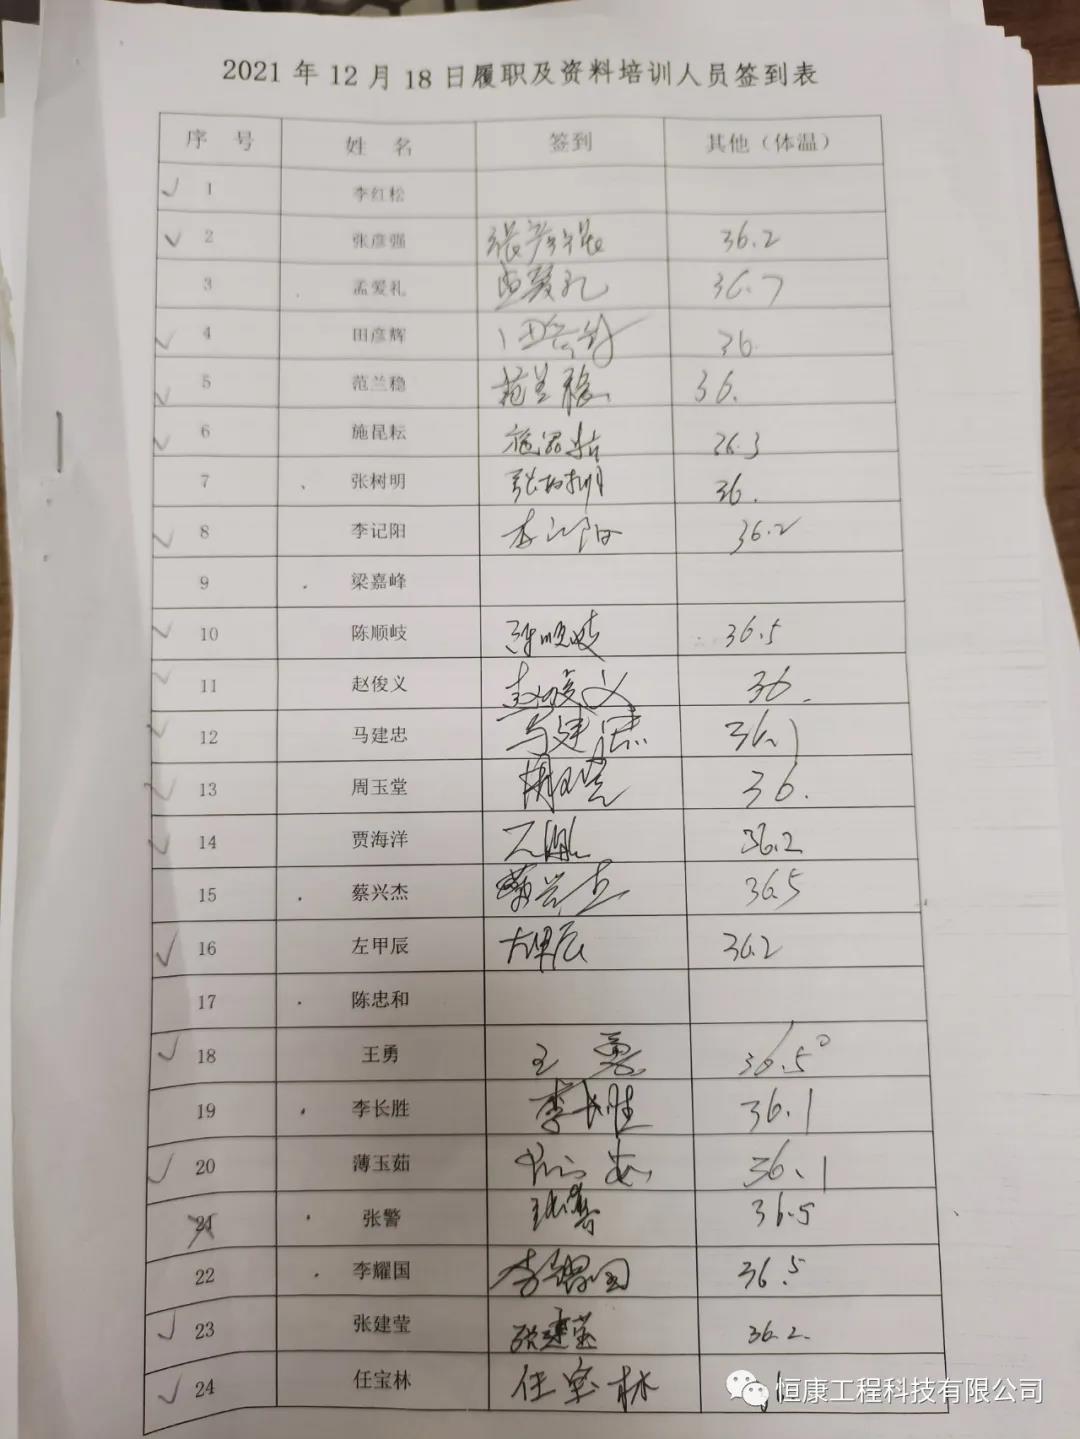 2021 年 12 月 18 日履职及资料培训人员签到表
序 号 姓 名 签到 其他（体温）
1 李红松
2 张彦强 张彦强 36.2
3 孟爱礼 孟爱礼 36.7
4 田彦辉 36.
5 范兰稳 范兰稳 36.
6 施昆耘 36.3
7 张树明 张树明 36.
8 李记阳 李记阳 36.2
9 梁嘉峰
10 陈顺岐 陈顺岐 36.5
11 赵俊义 赵俊义 36.
12 马建忠 马建忠 36.1
13 周玉堂 周玉堂 36.
14 贾海洋 36.2
15 蔡兴杰 蔡兴杰 36.5
16 左甲辰 左甲辰 36.2
17 陈忠和
18 王勇 王勇 36.5°
19 李长胜 李长胜 36.1
20 薄玉茹 36.1
21 张警 张警 36.5
22 李耀国 李耀国 36.5
23 张建莹 张建莹 36.2.
24 任宝林 任宝林
恒康工程科技有限公司